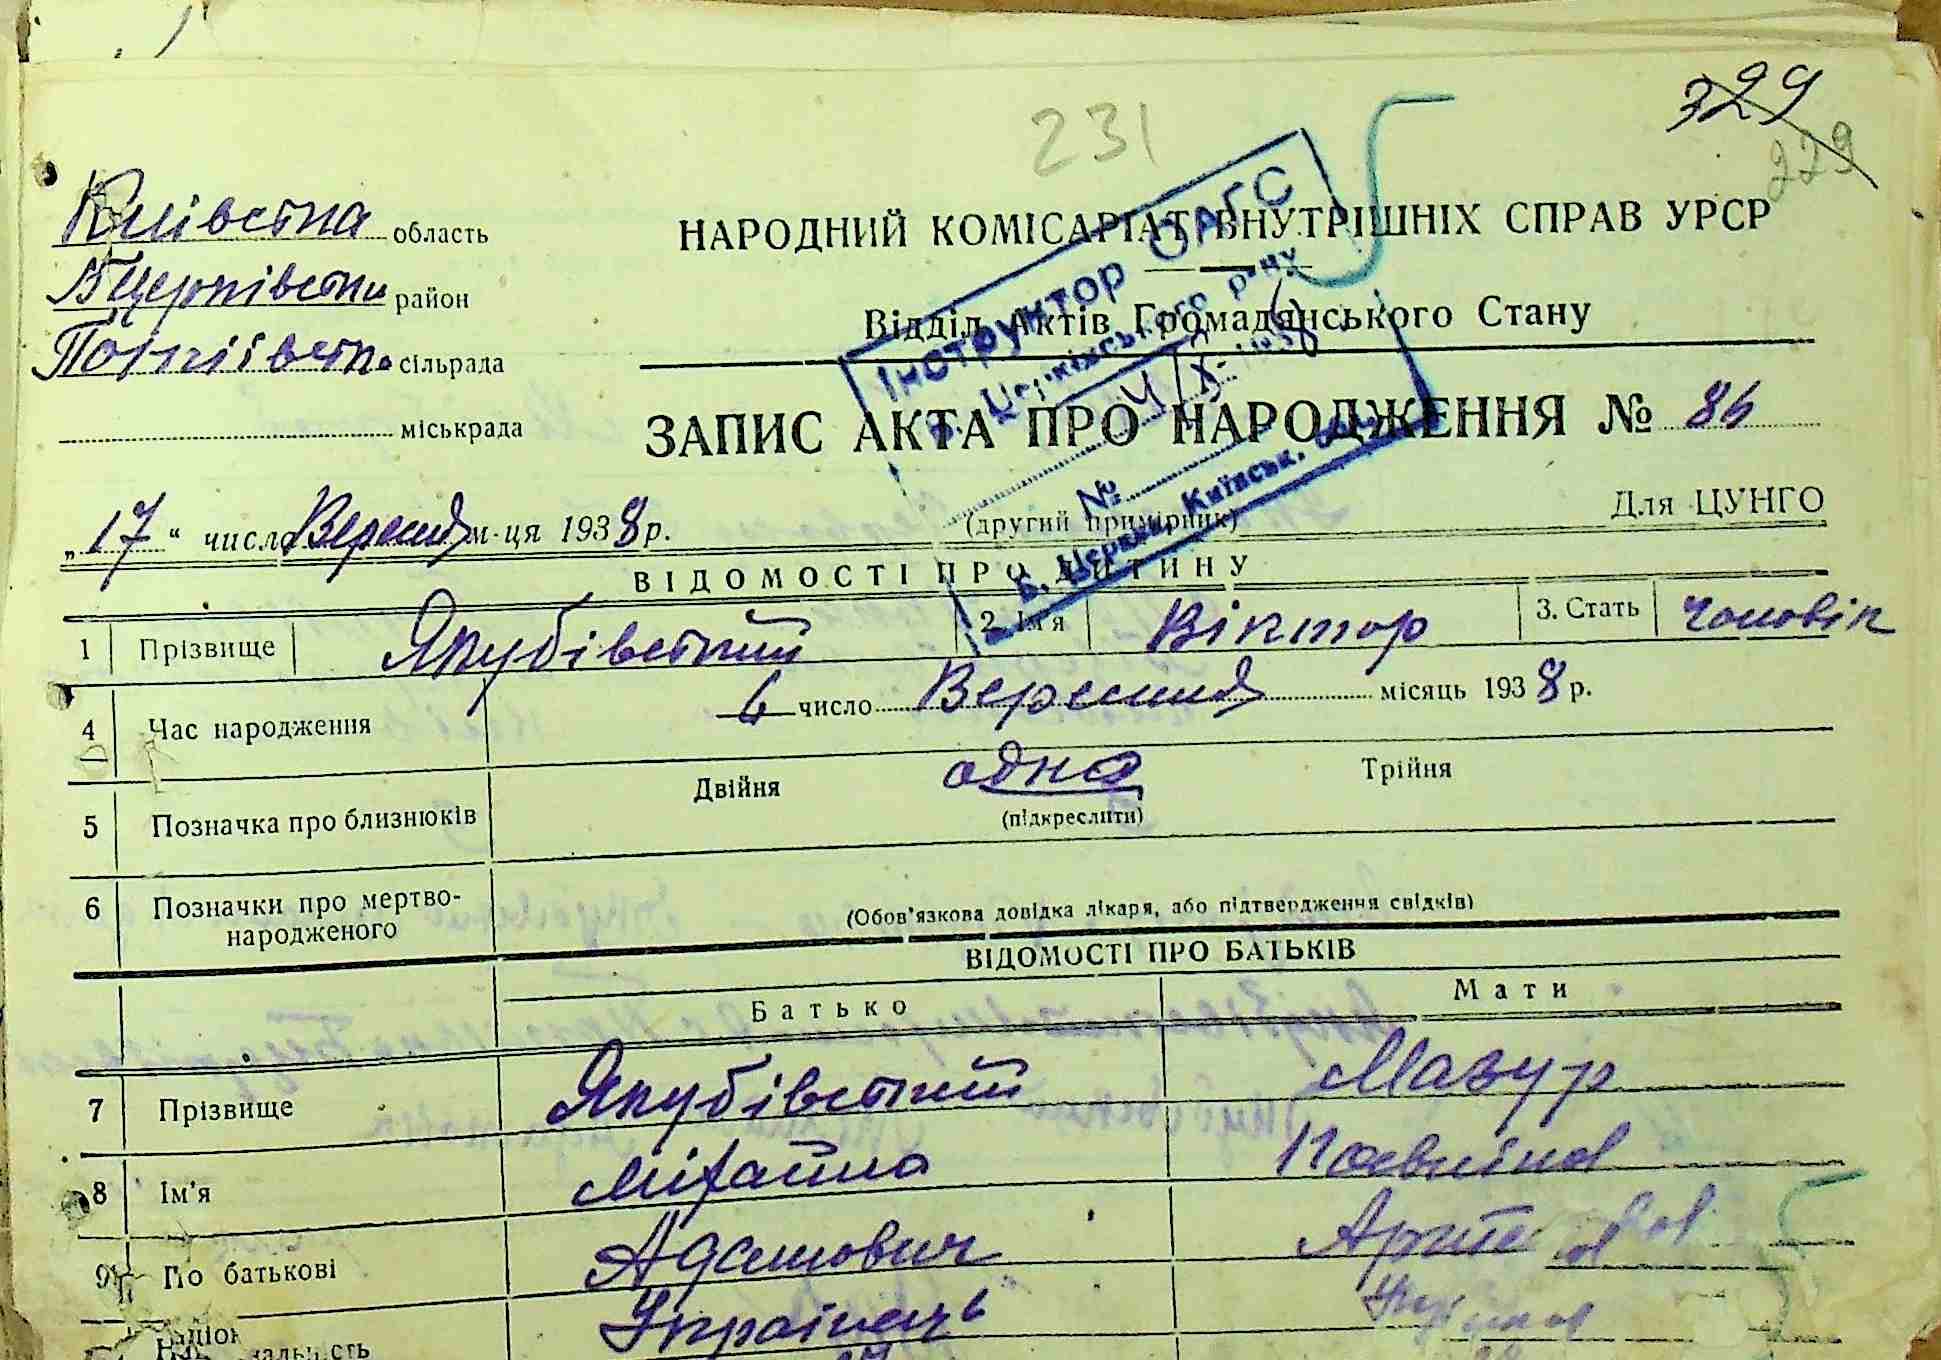 329
229
231
Київська область
БЦерківський район
сільрада
міськрада
НАРОДНИЙ КОМІСАРІАТ ВНУТРІШНІХ СПРАВ УРСР
Відділ Актів Громадянського Стану
ЗАПИС АКТА ПРО НАРОДЖЕННЯ № 86
Інструктор ОАГС
Б. Церківського р-ну
№
Б. Церква, Київськ.
„17“ число Вересня м-ця 1938 р.
(другий примірник)
Для ЦУНГО
ВІДОМОСТІ ПРО ДИТИНУ
1 Прізвище Якубівський 2. Ім'я Віктор 3. Стать чоловік
4 Час народження 6 число Вересния місяць 1938 р.
5 Позначка про близнюків Двійня одна Трійня
(підкреслити)
6 Позначки про мертво-
народженого
(Обов'язкова довідка лікаря, або підтвердження свідків)
ВІДОМОСТІ ПРО БАТЬКІВ
Батько Мати
7 Прізвище Якубівський Мазур
8 Ім'я Міхайло Павліна
9 По батькові Адамович
Українець